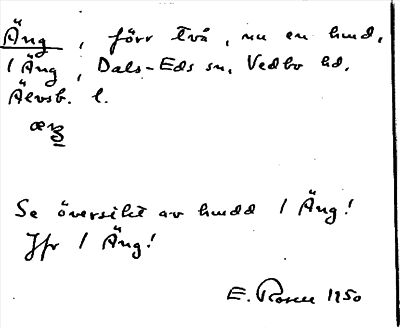 Äng, förr två, nu en hmd,
1 Äng, Dals-Eds sn, Vedbo hd,
Älvsb. l.
æŋ
Se översikt av hmdd 1 Äng!
Jfr 1 Äng!
E. Rosell 1950